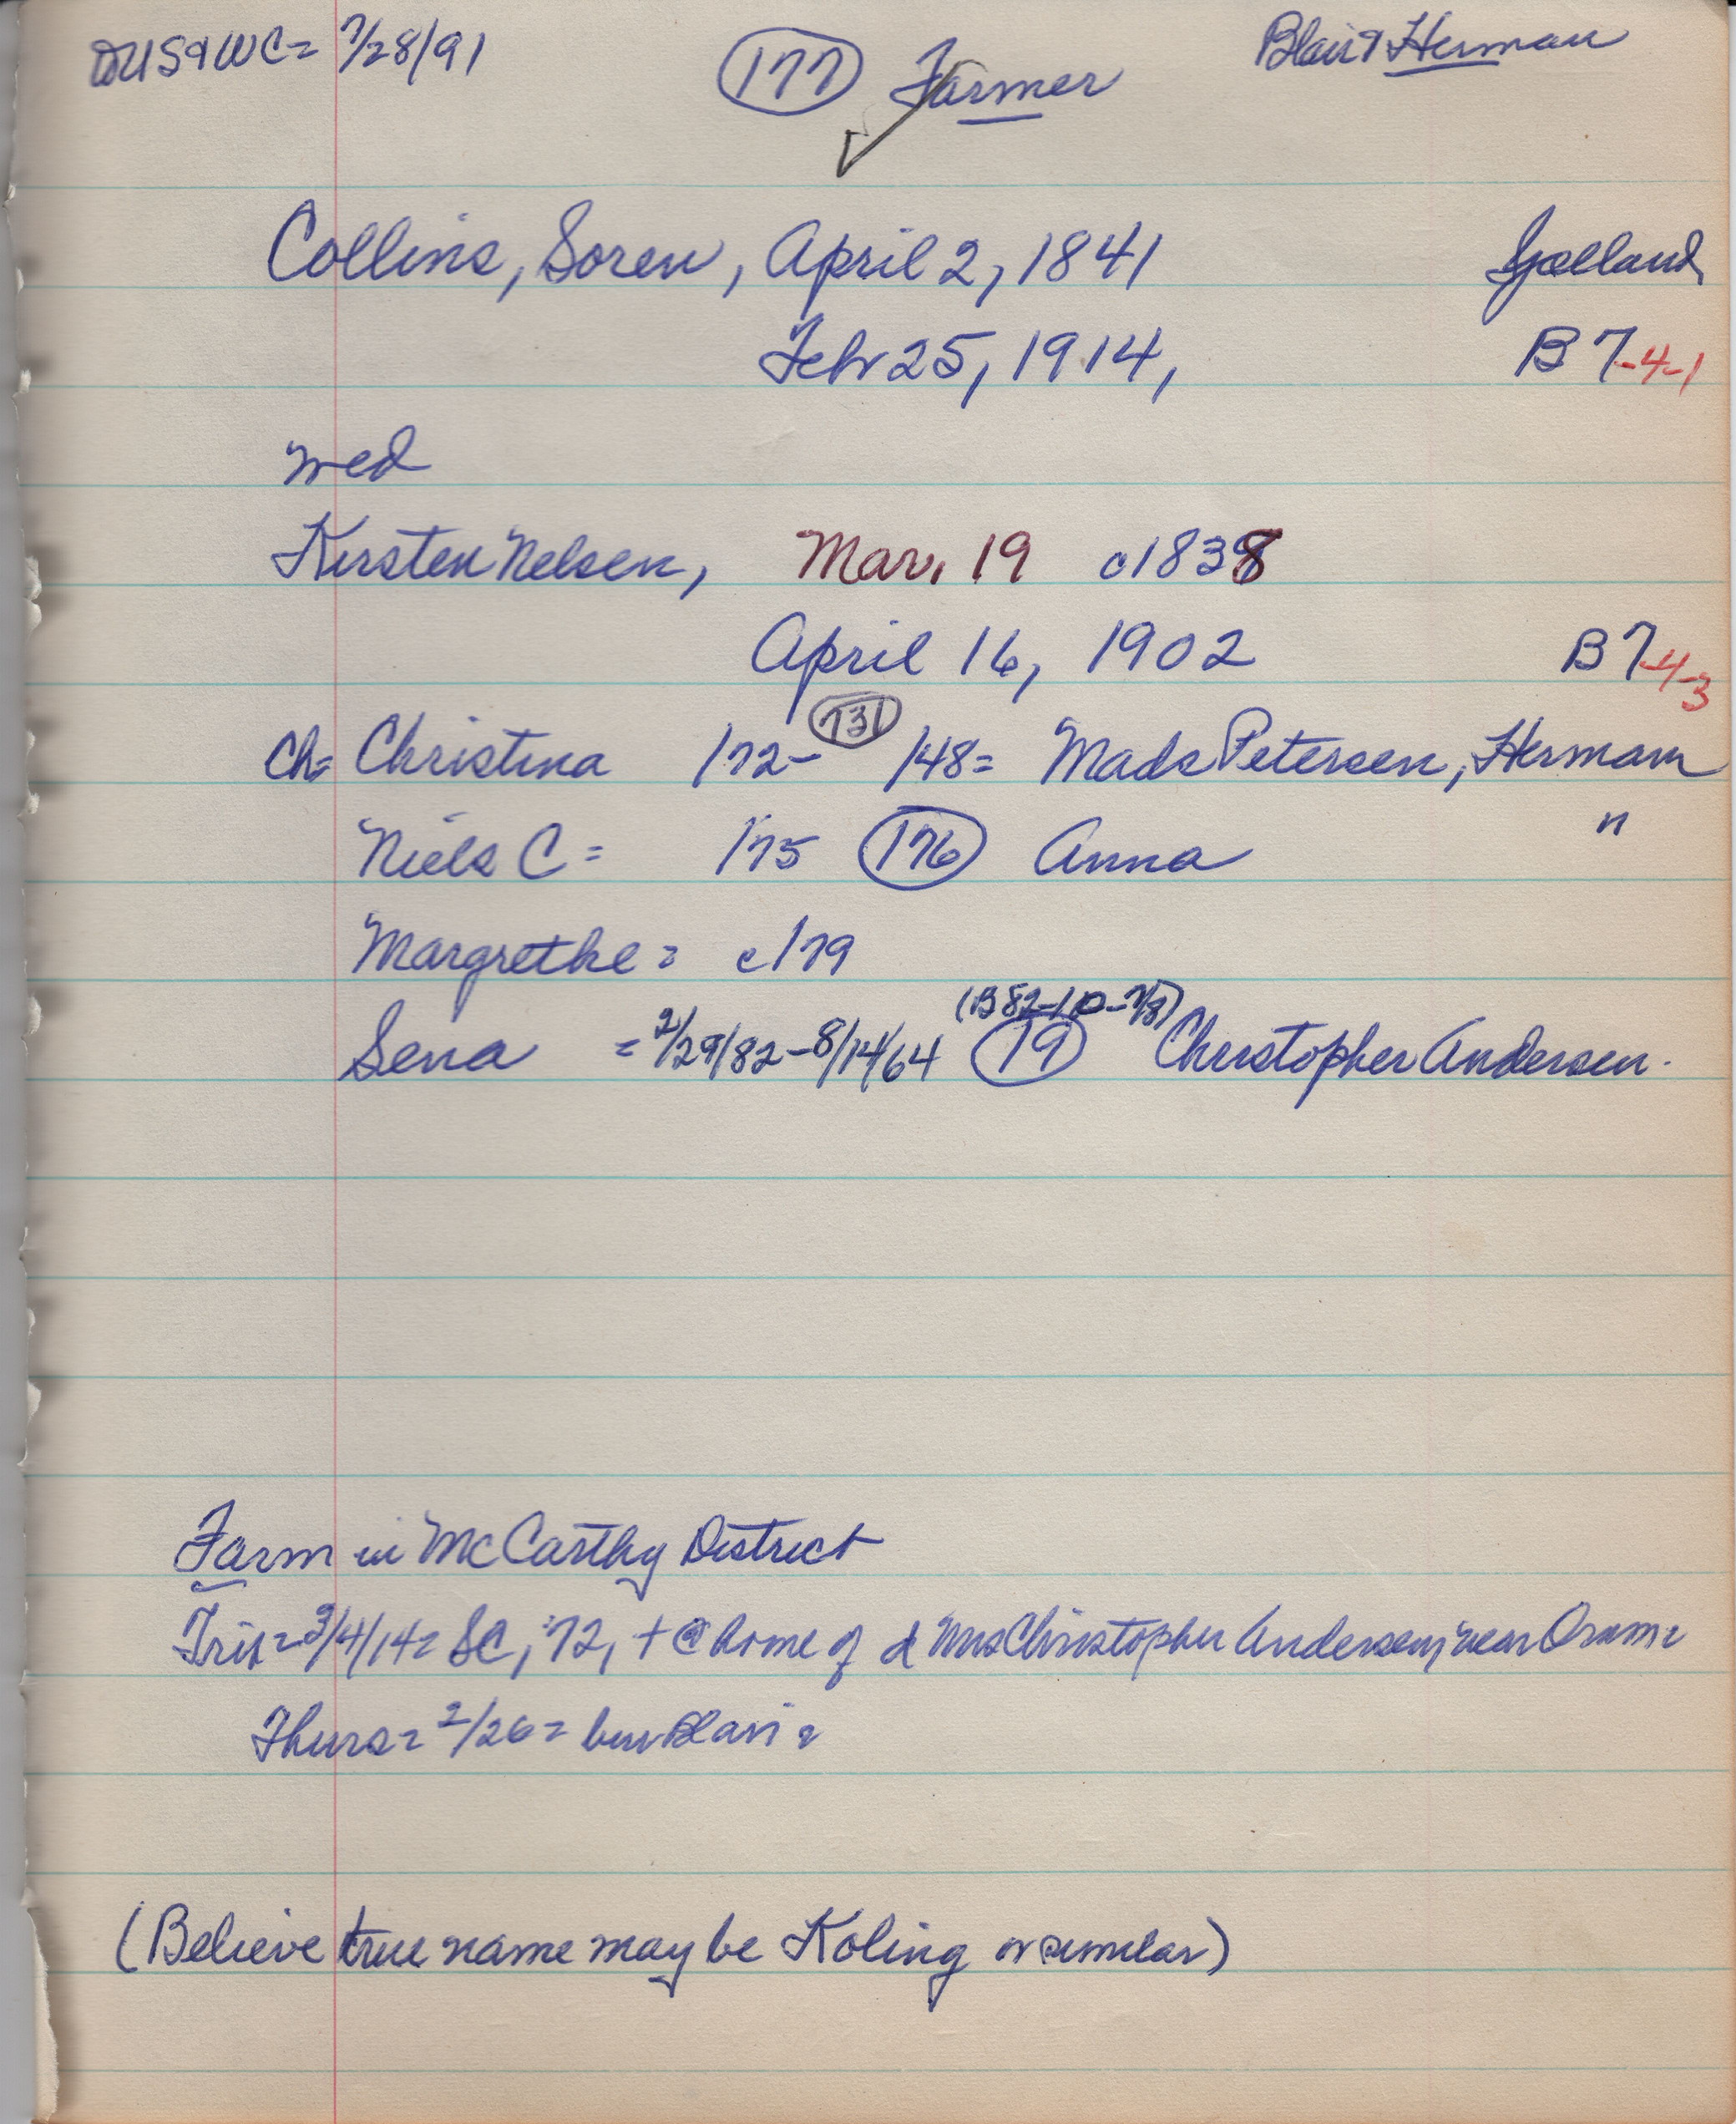 US & WC = 7/28/91 (177) Farmer Blair & Herman
Collins, Soren, April 2, 1841 Sjælland
Feb 25, 1914, B7-4-1
wed
Kirsten Nelsen, Mar. 19 c1838
April 16, 1902 B7-4-3
Ch= Christina /72- (731) /48= Mads Petersen, Herman
Niels C = /75 (176) Anna "
Margrethe = c/79
(B82-1D-7/8)
Sena = 2/29/82-8/14/64 (19) Christopher Andersen.
Farm in McCarthy District
Trib= 3/4/14= SC, 72, + @ home of d Mrs Christopher Andersen, near Orum=
Thurs= 2/26= bur Blair=
(Believe true name may be Koling or similar)